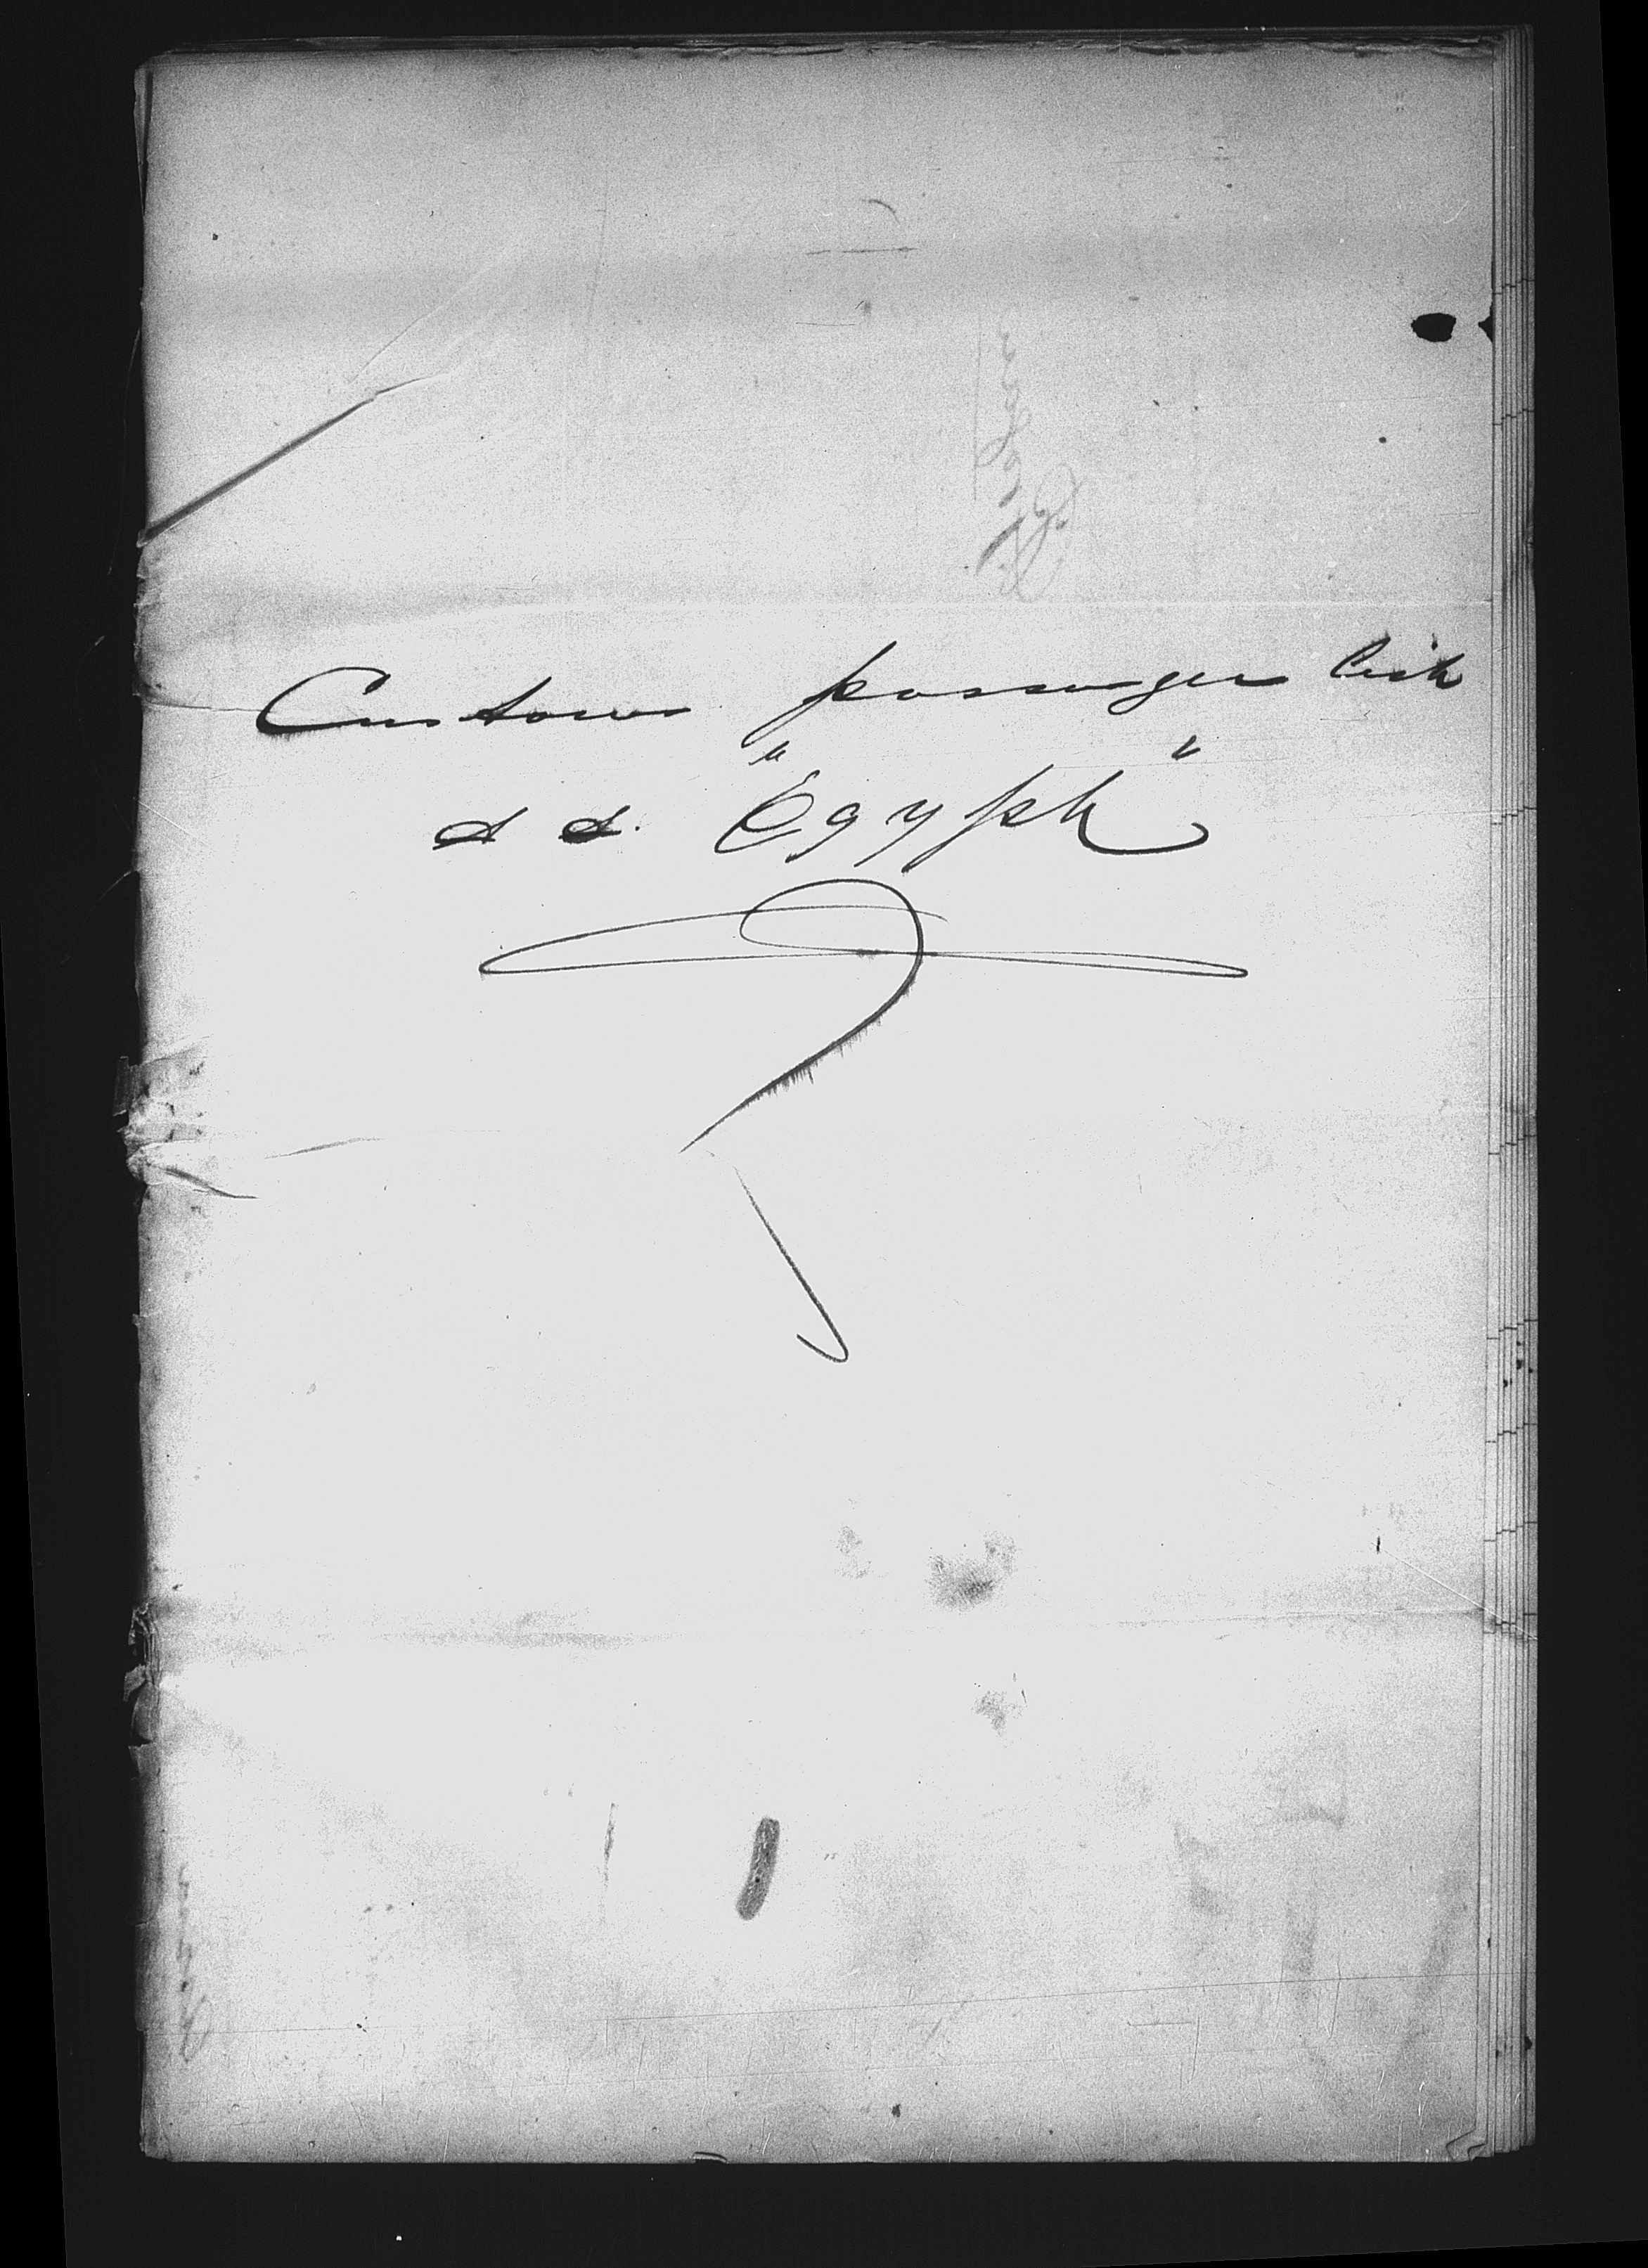 Customs passenger list
s s. "Egypt"